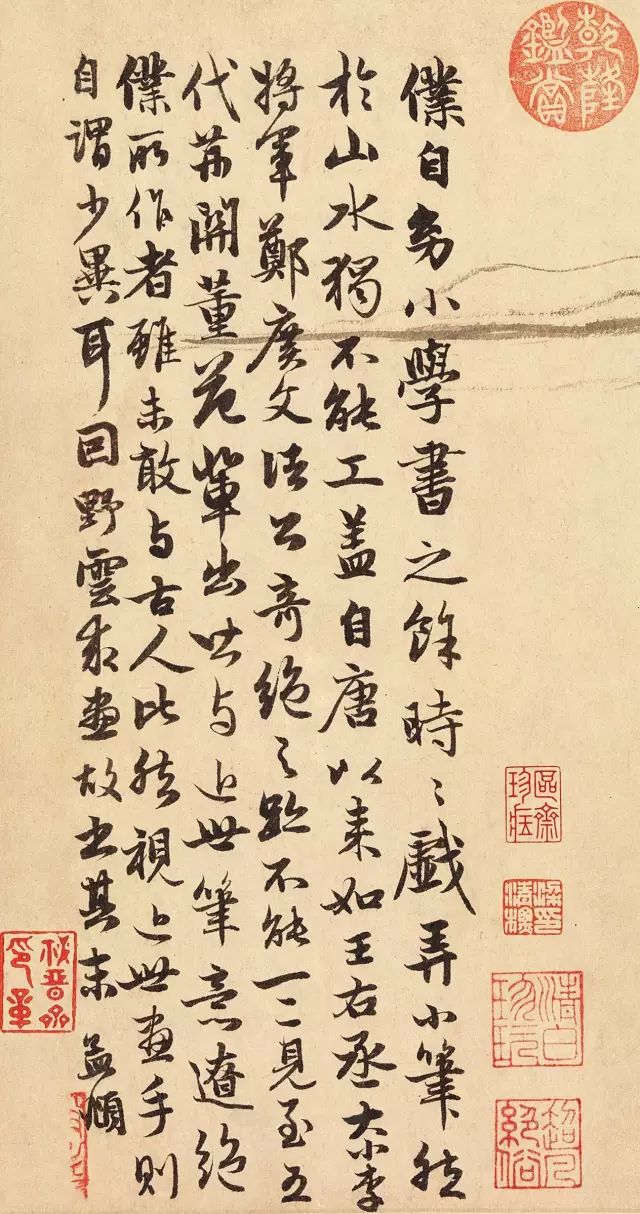 乾隆鑑賞
僕自幼小學書之餘時〻戲弄小筆然
於山水獨不能工盖自唐以來如王右丞大小李
將軍鄭廣文諸公奇絕之跡不能一二見至五
代荊關董范輩出皆与近世筆意遼絕
僕所作者雖未敢与古人比然視近世畫手則
自謂少異耳因野雲求畫故書其末 孟頫